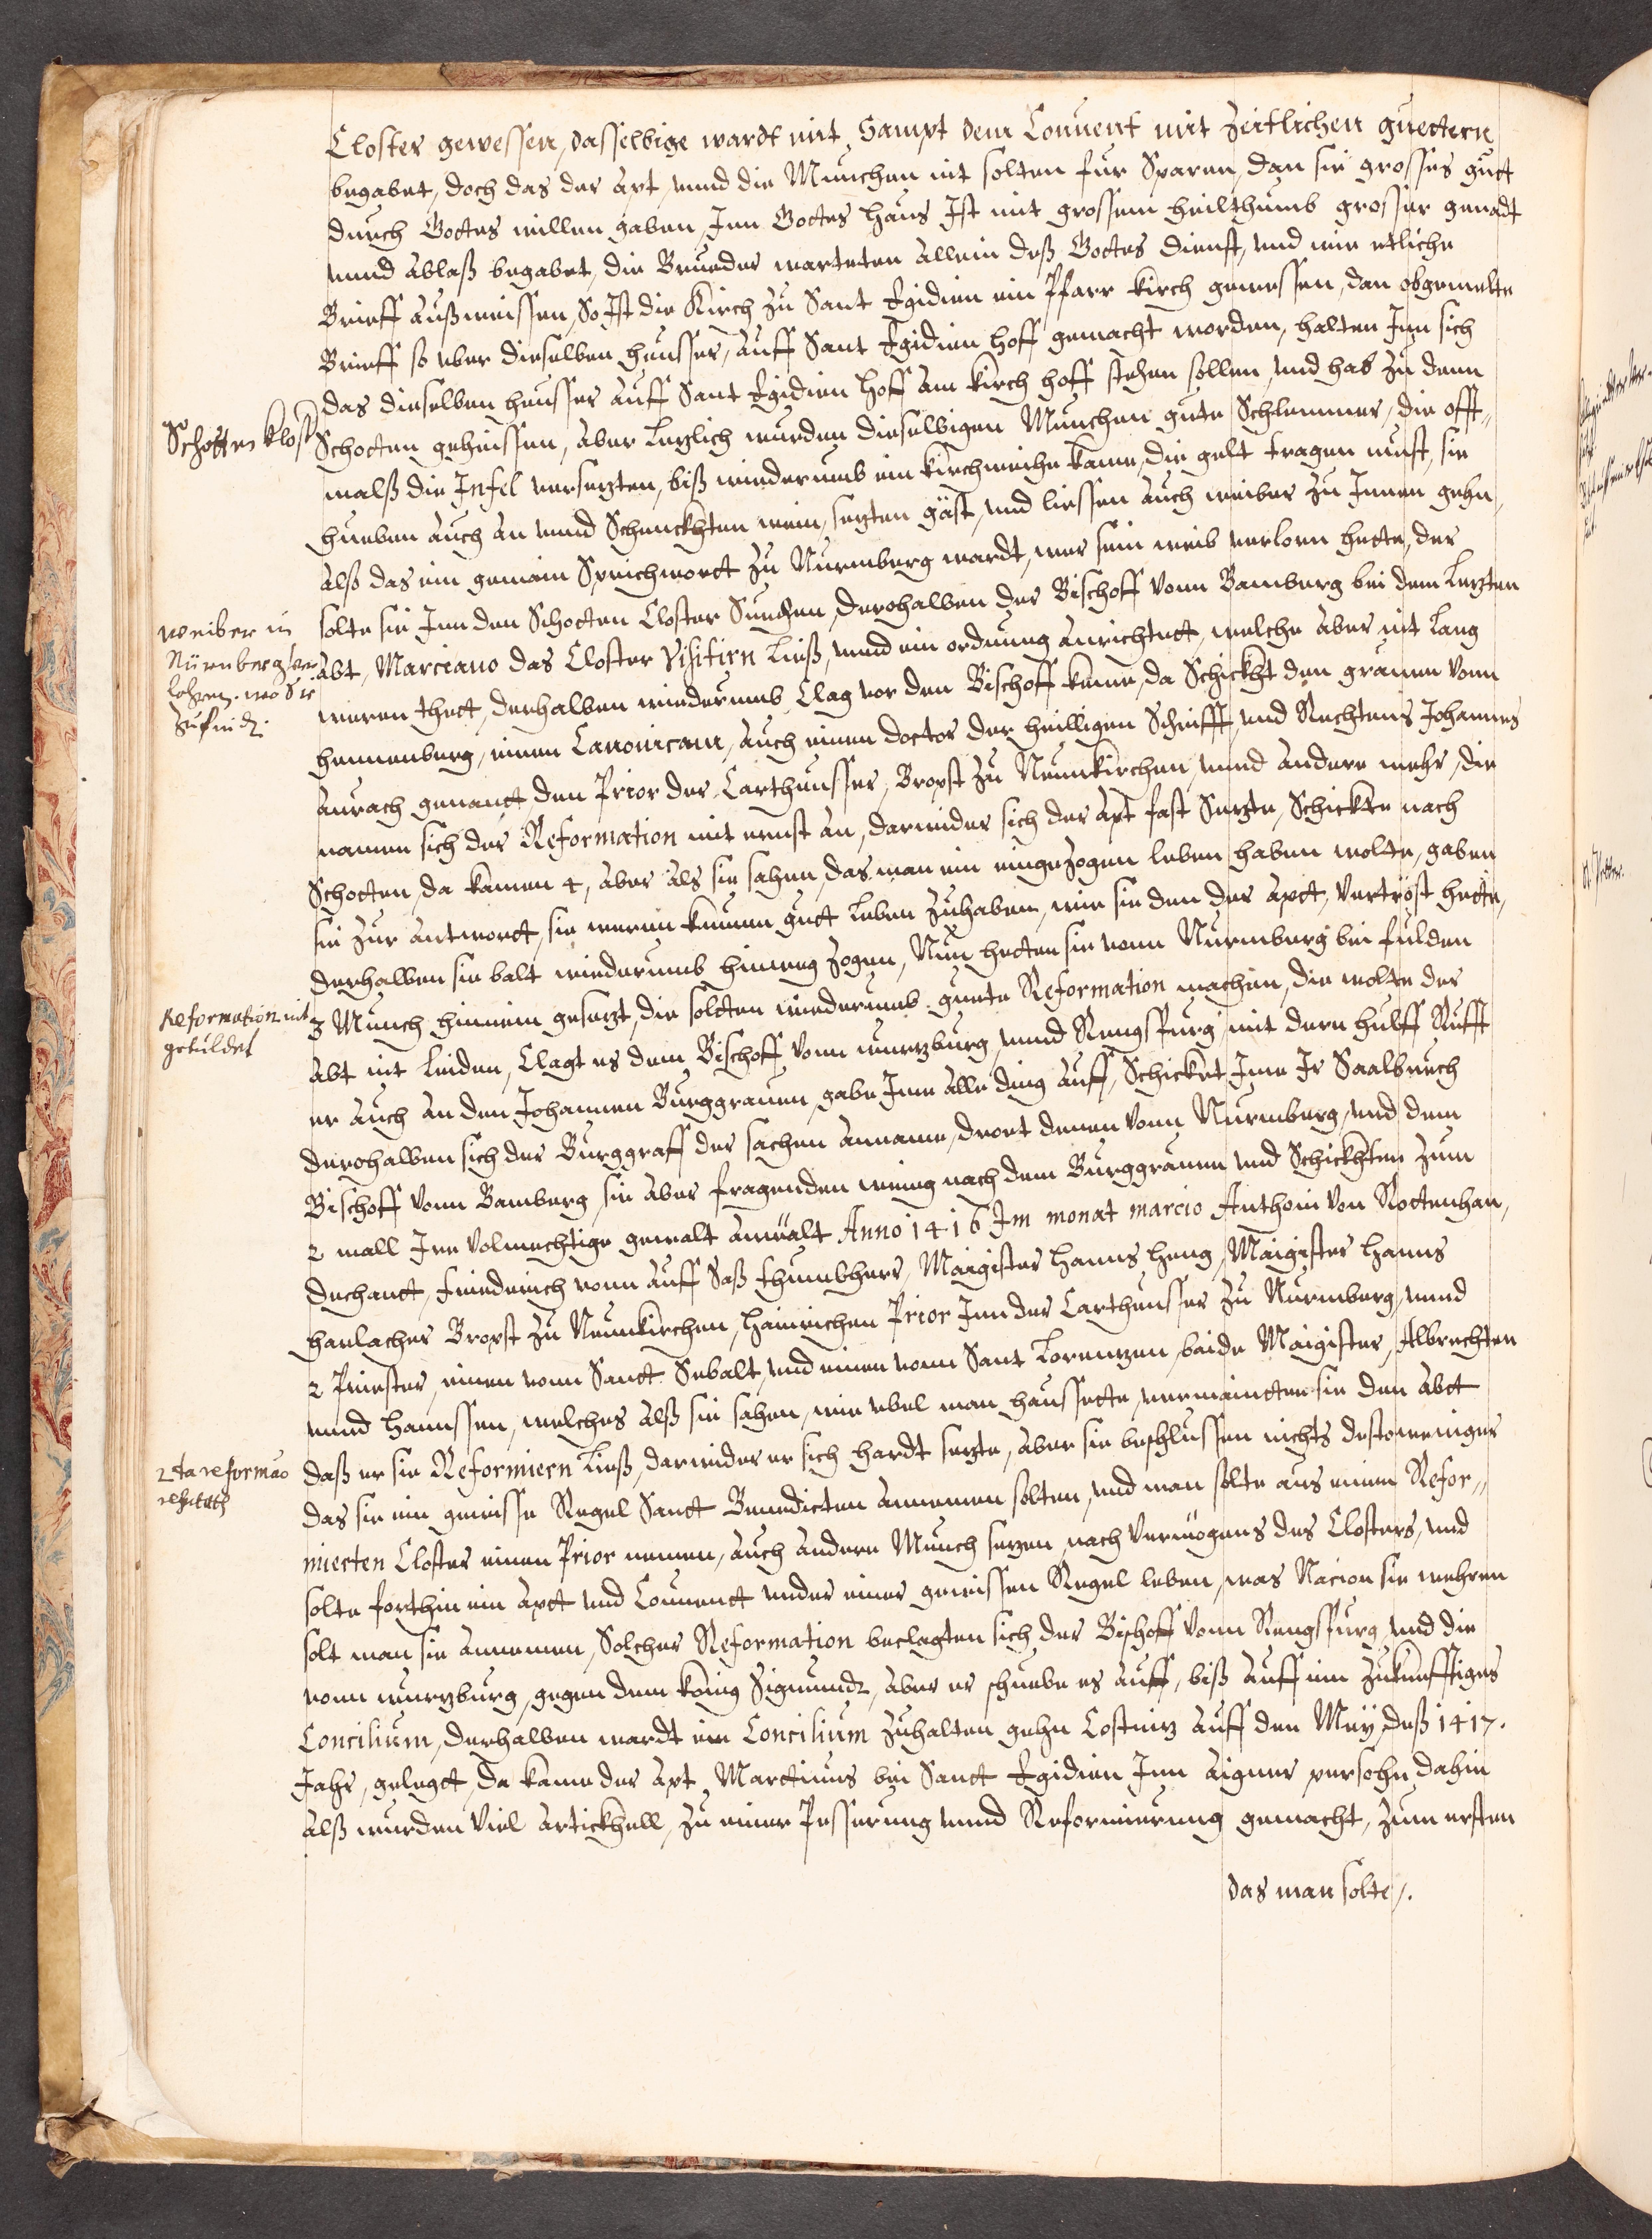 Closter gewessen, dasselbige wardt mit Sampt dem Conuent mit Zeitlichen guettern
begabet, doch das der Apt, unnd die Munchen nit solten fur Sparen, dan sie grosses gutt
durch Gottes willen gaben, Inn Gottes Haus Ist mit grossem heilthumb grosser genadt
unnd Ablaß begabet, die Brueder warteten Allein deß Gottes dienst, und wie etliche
Brieff außweissen, So Ist die Kirch zu Sant Egidien ein Pfarr kirch gewessen, dan obgemelte
Brieff so uber dieselben heusser, auff Sant Egidien hoff gemacht worden, halten Inn sich
das dieselben heusser auff Sant Egidien hoff am kirch hoff stehen sollen, und hab zu denn
Schotten Klost
Schotten geheissen, aber letzlich wurden dieselbigen Munchen gute Schlemmer, die offt„
malß die Infel versezten, biß wiederumb ein kirchweihe kame, die gelt tragen must, sie
hueben auch an unnd Schenckhten wein, sezten gäst, und liessen auch weiber zu Innen gehn,
Alß das ein gemein Sprichwortt zu Nurmberg wardt, wer sein weib verlorn hette, der
solte sie Inn den Schotten Closter Suechen, derohalben der Bischoff vonn Bamberg bei dem letzten
weiber in
Nürnberg ver
lohren. wo Sie
Zufindt.
Abt, Marciano das Closter Visitirn ließ, unnd ein ordnung anrichtett, welche aber nit lang
weren thett, derhalben wiederumb Clag vor den Bischoff kame, da Schickht den grauen vonn
hennenberg, einen Canonicam, auch einen doctor der heilligen Schrifft, und Rechtens Johannes
Aurach genantt, den Prior der Carthausser, Bropst zu Neunkirchen, unnd andere mehr, die
namen sich der Reformation mit ernst an, darwieder sich der Apt fast Sezte, Schickte nach
Schotten, da kamen 4, aber als sie sahen, das man ein eingezogen leben haben wolte, gaben
sie zur antwortt, sie weren kummen gutt leben zuhaben, wie sie den der Aptt, Vertröst hette,
derhalben sie balt wiederumb hinweg zogen, Nun hetten sie vonn Nurmberg bei fulden
Reformation nit
geduldet
3 Munch hinnein gesezt, die soltten wiederumb guete Reformation machen, die wolte der
Abt nit leiden, Clagt es dem Bischoff vonn wurzburg, unnd Rengspurg, mit dern hulff Rufft
er auch an den Johannen Burggrauen, gabe Ime alle ding auff, Schickt Ime Ir Saalbuech
derohalben sich der Burggraff der sachen anname, droet denen vonn Nurmberg, und dem
Bischoff vonn Bamberg, sie aber fragenden wenig nach dem Burggrauen und Schickhten zum
2 mall Ire Volmechtige gewalt anwält Anno 1416 Im monat marcio Anthoni von Rottenhan,
dechantt, Friederich vonn Auff Saß thumbherr, Maigister Hanns Heug, Maigister Hanns
Haulacher Bropst zu Neunkirchen, Hainrichen Prior Inn der Carthausser zu Nurmberg, unnd
2 Priester, einen vonn Sanct Sebalt, und einen vonn Sant Lorenzen, beide Maigister, Albrechten
unnd Hannssen, welches Alß sie sahen, wie ubel man haussette, vermaintten sie den Abtt
2 ta reformao
daß er sie Reformiern ließ, darwieder er sich hardt sezte, aber sie beschlussen nichts destoweniger
das sie ein gewisse Regel Sanct Benedicten annemen solten, und man solte aus einem Refor„
mierten Closter einen Prior nemen, auch andere Munch sezen, nach Vermögens des Closters, und
solte forthin ein Aptt und Conuentt under einer gewissen Regel leben, was Nacion sie wehren
solt man sie annemen, Solcher Reformation beclagten sich der Bischoff vonn Rengspurg und die
vonn wurzburg, gegen dem König Sigmundt, aber er schuebe es auff, biß auff ein zukunfftiges
Concilium, derhalben wardt ein Concilium zuhalten gehn Costniz auff den Meÿ, deß 1417.
Jahr, gelegtt, da kame der Apt, Marttinus bei Sanct Egidien Inn aigner persohn dahin
Alß wurden viel artickhell, zu einer Pesserung unnd Reformierung gemacht, zum ersten
das man solte /.